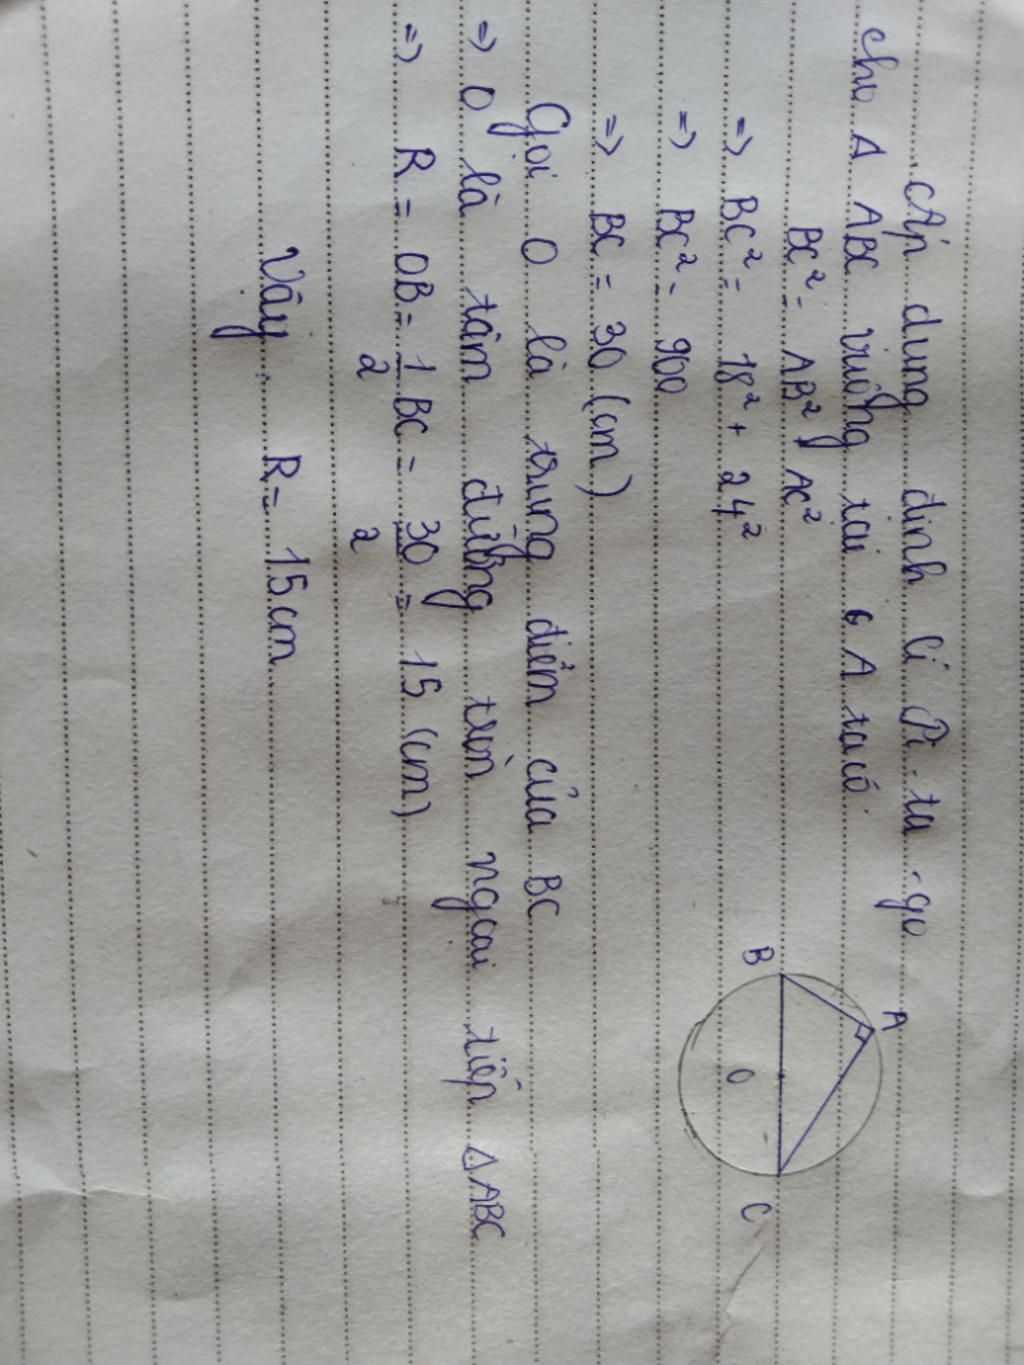 Áp dụng định lí Pi-ta-go
cho Δ ABC vuông tại A ta có
BC² = AB² + AC²
=> BC² = 18² + 24²
=> BC² = 900
=> BC = 30 (cm)
Gọi O là trung điểm của BC
=> O là tâm đường tròn ngoại tiếp Δ ABC
=> R = OB = 1/2 BC = 30/2 = 15 (cm)
Vậy R = 15cm
A
B
O
C